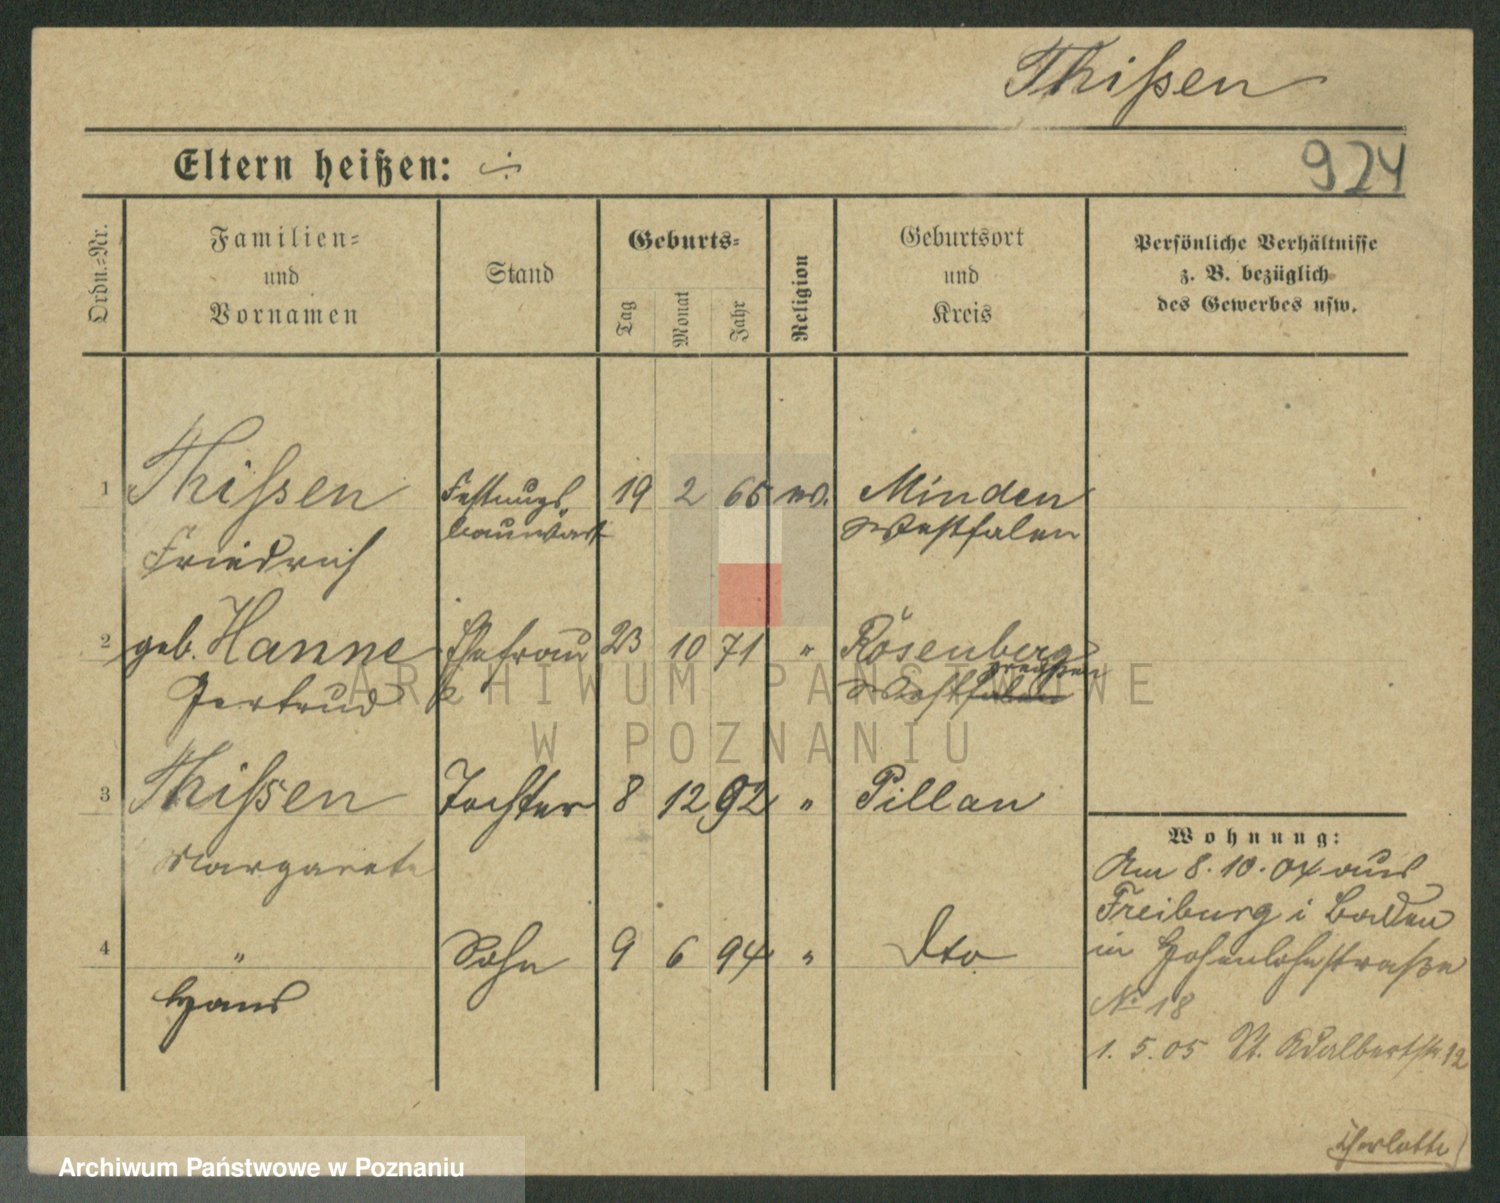 Thißen
Eltern heißen: ÷
924
Ordn.-Nr.
Familien-
und
Vornamen
Stand
Geburts-
Tag
Monat
Jahr
Religion
Geburtsort
und
Kreis
Persönliche Verhältnisse
z. B. bezüglich
des Gewerbes usw.
1 Thißen Festungs 19 2 65 ev. Minden
Friedrich bauwart Westfalen
2 geb. Hanne Ehefrau 23 10 71 " Rosenberg
Gertrud Westfalen preußen
3 Thißen Tochter 8 12 92 " Pillau
Margarete
4 " Sohn 9 6 94 " dto
Hans
Wohnung:
Am 8.10.04 aus
Freiburg i Baden
in Hohenlohestraße
No 18
1.5.05 St. Adalbertstr 12
Charlotte
ARCHIWUM PAŃSTWOWE
W POZNANIU
Archiwum Państwowe w Poznaniu